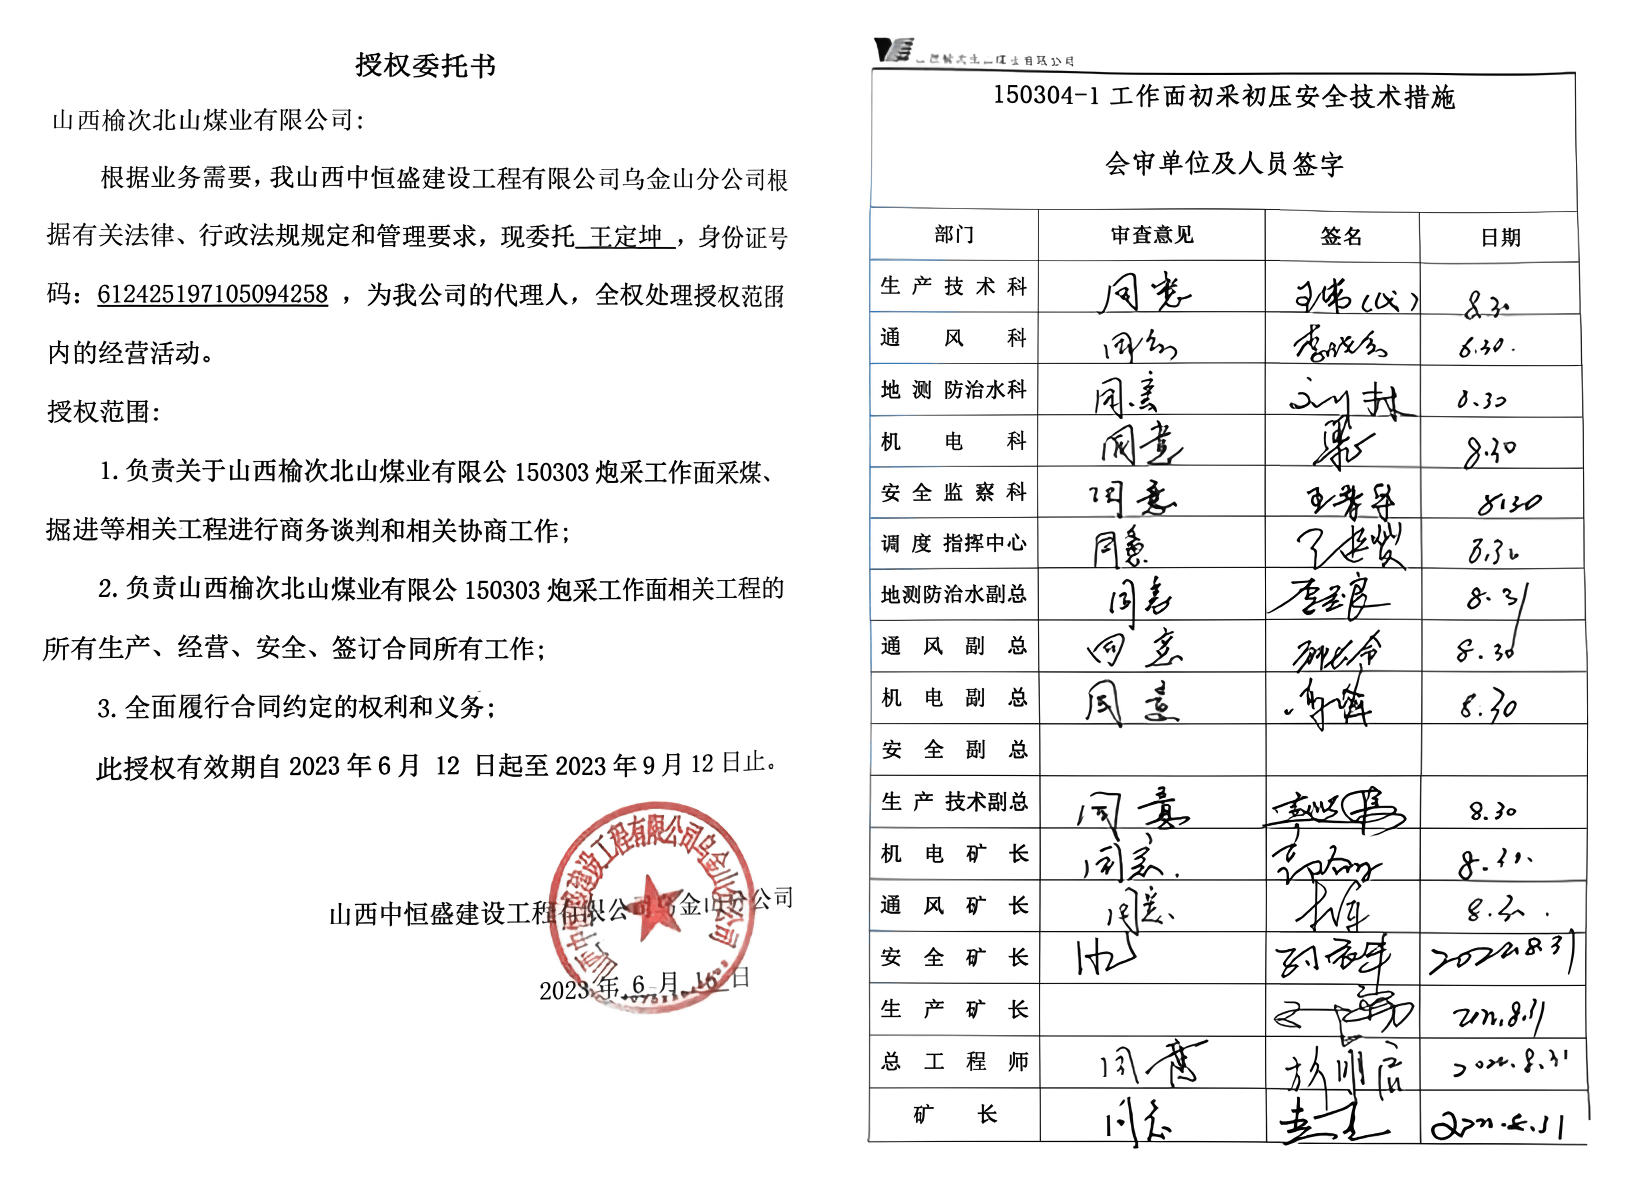 授权委托书
山西榆次北山煤业有限公司:
根据业务需要,我山西中恒盛建设工程有限公司乌金山分公司根
据有关法律、行政法规规定和管理要求,现委托 王定坤 ,身份证号
码: 612425197105094258 ,为我公司的代理人,全权处理授权范围
内的经营活动。
授权范围:
1.负责关于山西榆次北山煤业有限公 150303 炮采工作面采煤、
掘进等相关工程进行商务谈判和相关协商工作;
2.负责山西榆次北山煤业有限公 150303 炮采工作面相关工程的
所有生产、经营、安全、签订合同所有工作;
3.全面履行合同约定的权利和义务;
此授权有效期自 2023 年 6 月 12 日起至 2023 年 9 月 12 日止。
山西中恒盛建设工程有限公司乌金山分公司
山西中恒盛建设工程有限公司乌金山分公司
2023 年 6 月 日
150304-1 工作面初采初压安全技术措施
会审单位及人员签字
部门 审查意见 签名 日期
生产技术科 同意 8.30
通风科 同意 8.30.
地测防治水科 同意 8.30
机电科 同意 8.30
安全监察科 同意 8.30
调度指挥中心 同意 8.30
地测防治水副总 同意 8.31
通风副总 同意 8.30
机电副总 同意 8.30
安全副总
生产技术副总 同意 8.30
机电矿长 同意. 8.30.
通风矿长 同意 8.30.
安全矿长 2022.8.31
生产矿长 2022.8.31
总工程师 同意 2022.8.31
矿长 同意 2022.8.31